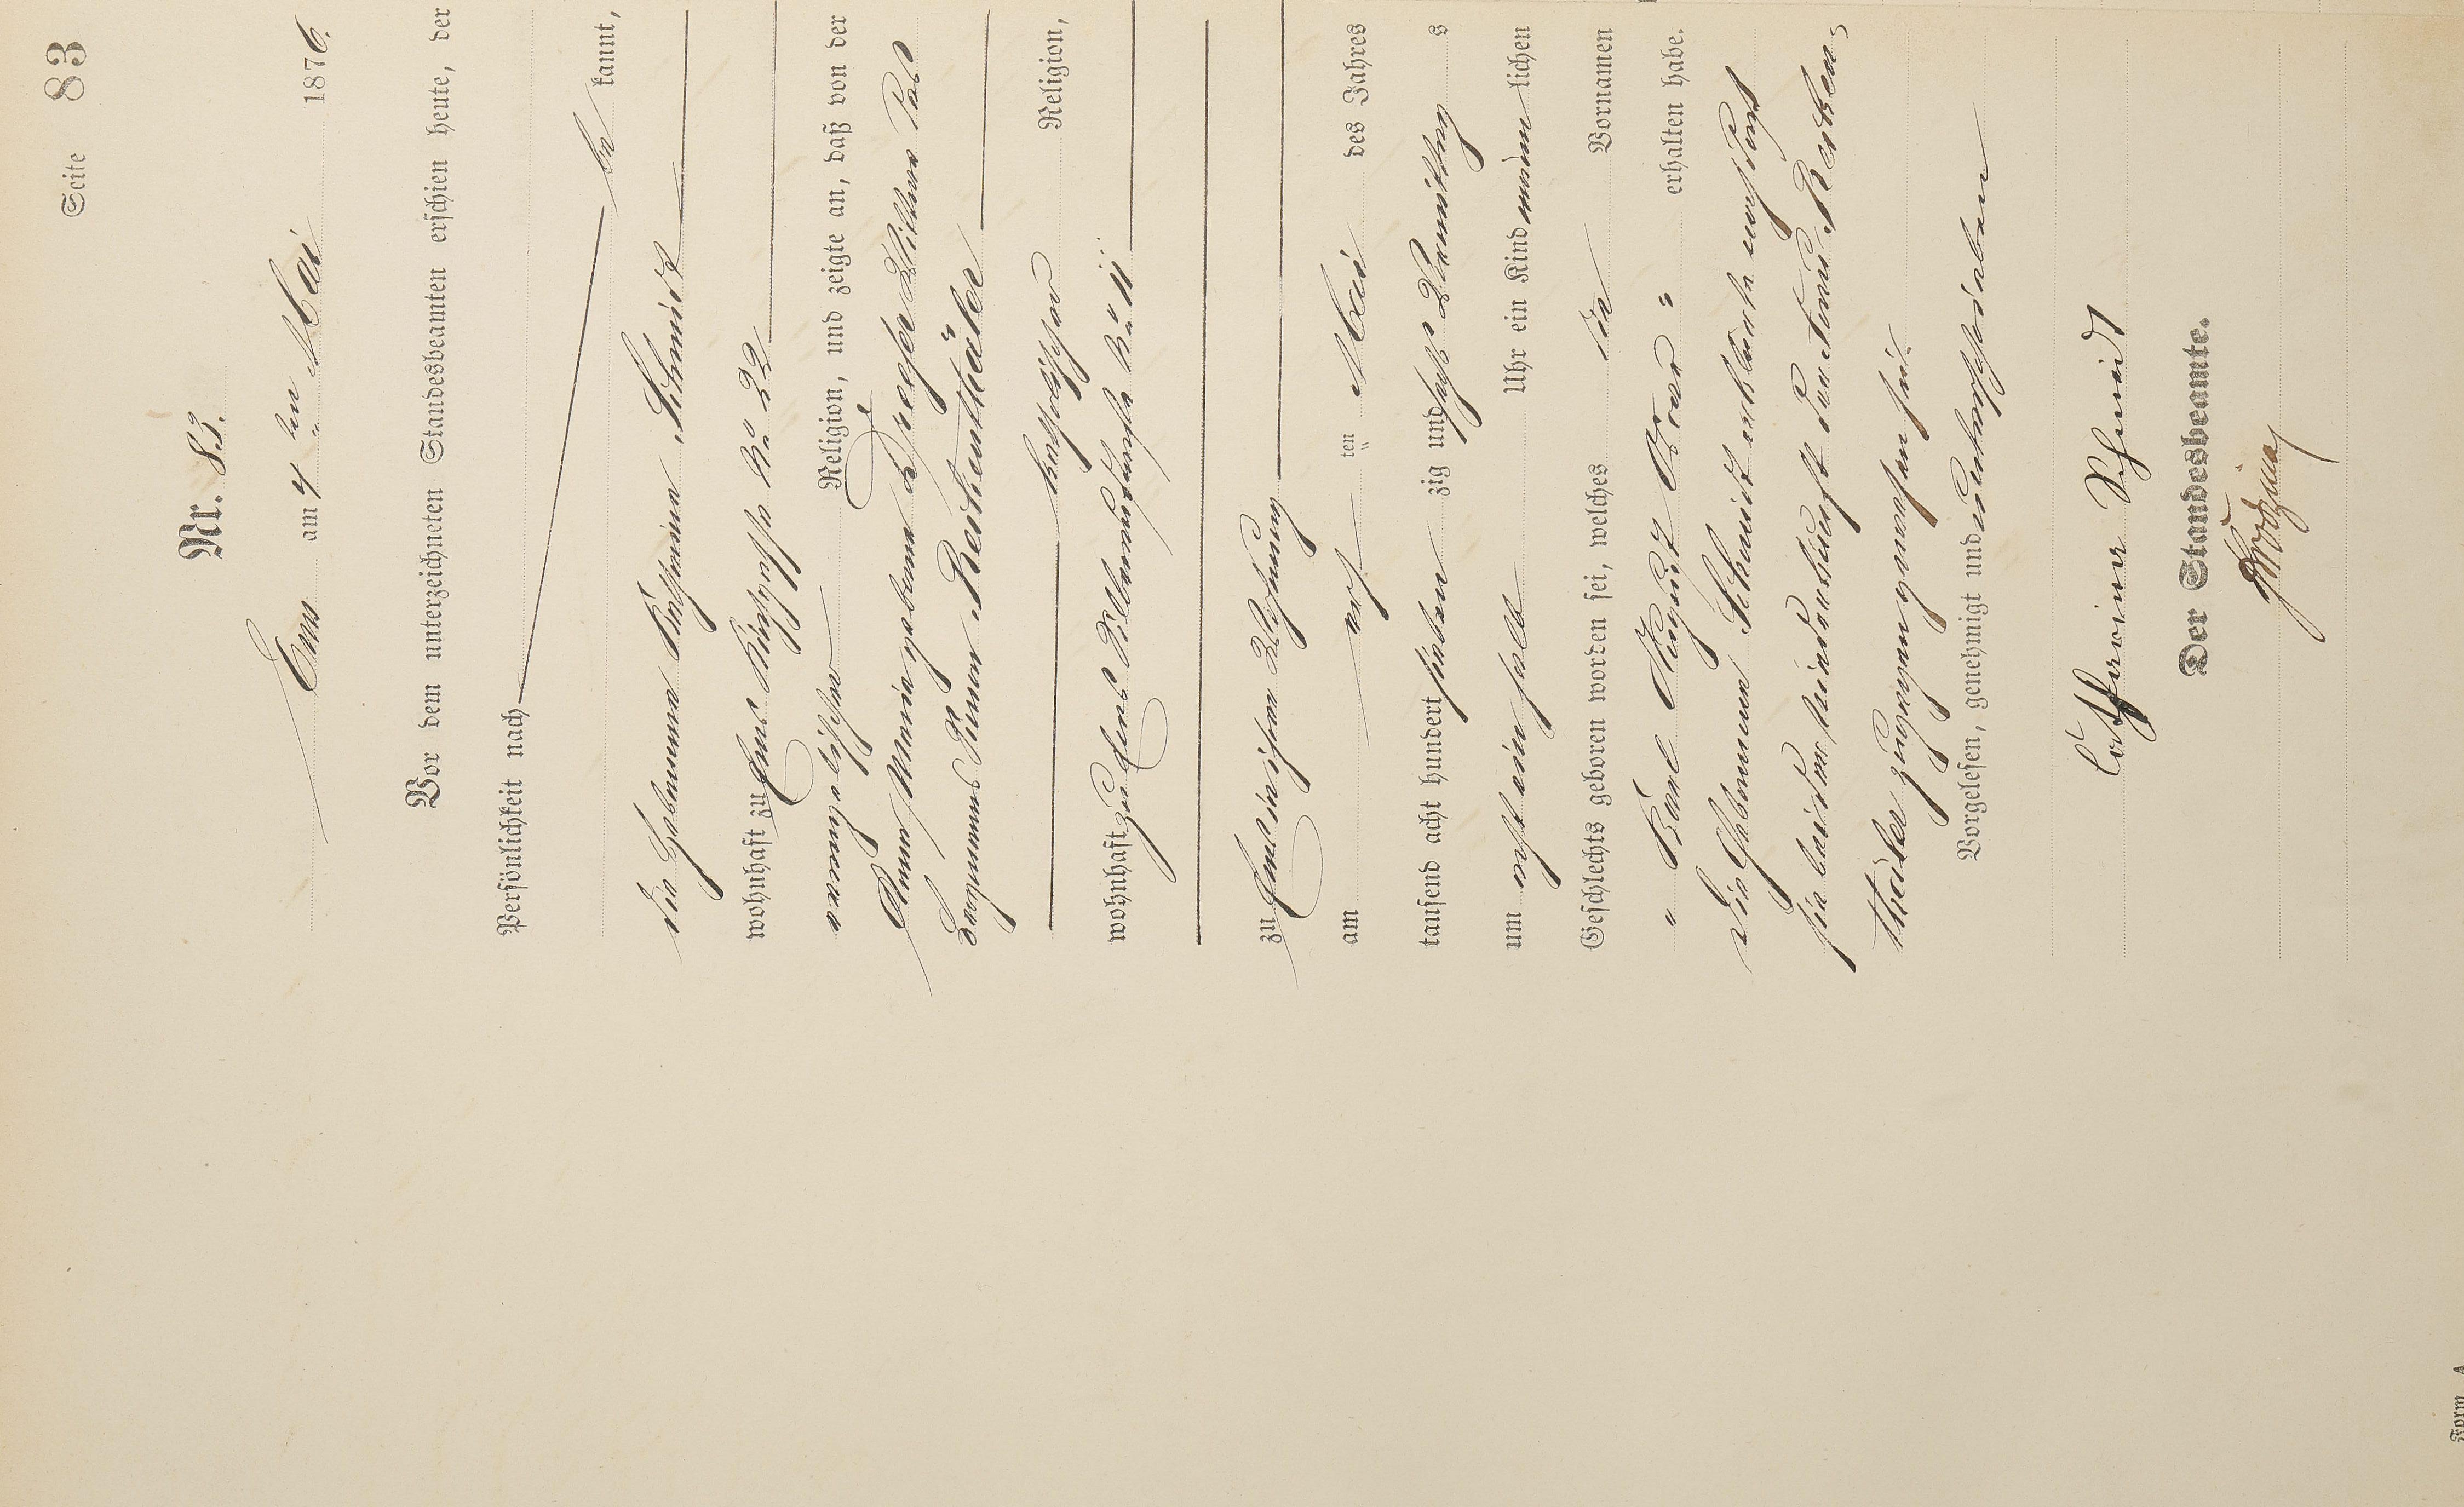 Seite 83
Nr. 83.
Ems am 4 ten Mai 1876.
Vor dem unterzeichneten Standesbeamten erschien heute, der
Persönlichkeit nach
be kannt,
die Hebamme Katharina Schmidt
wohnhaft zu Ems Kirchgasse No 22
evangelischer Religion, und zeigte an, daß von der
Anna Maria geborene Wittwe des
Bergmanns Reichenthäler
katholischer Religion,
wohnhaft zu Ems No 11
zu Ems in ihrer Wohnung
am ten Mai des Jahres
tausend acht hundert sieben zig und sechs Vormittags
um acht ein halb Uhr ein Kind männlichen
Geschlechts geboren worden sei, welches die Vornamen
" Carl August " erhalten habe.
Die Hebamme Schmidt erklärte
sie bei der Niederkunft der Reichen-
thäler zugegen gewesen sei.
Vorgelesen, genehmigt und unterschrieben
Catharina Schmidt
Der Standesbeamte.
Form. A